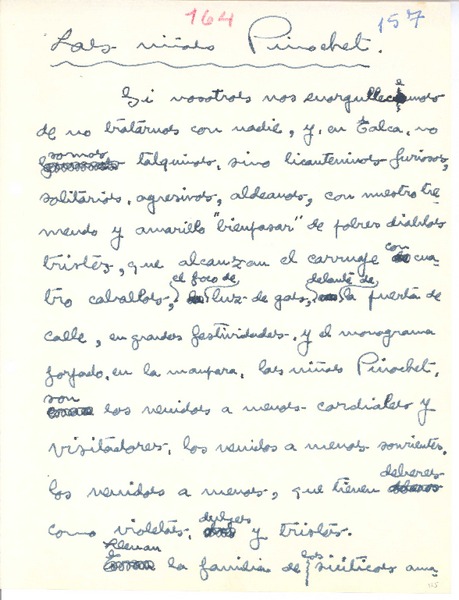 164 157
Las niñas Pinochet.
Si nosotros nos enorgullecemos
de no tratarnos con nadie, y, en Talca, no
somos talquinos, sino licanteninos furiosos,
solitarios, agresivos, aldeanos, con nuestro tre-
mendo y amarillo "bienpasar" de pobres diablos
tristes, que alcanzan el carruaje con cua-
tro caballos, el foco de luz de gas, delante de la puerta de
calle, en grandes festividades, y el monograma
forjado, en la mampara, las niñas Pinochet,
son los venidos a menos cordiales y
visitadores, los venidos a menos sonrientes,
los venidos a menos, que tienen deberes
como violetas, dulces y tristes.
Llevan la familia de los siúticos ama